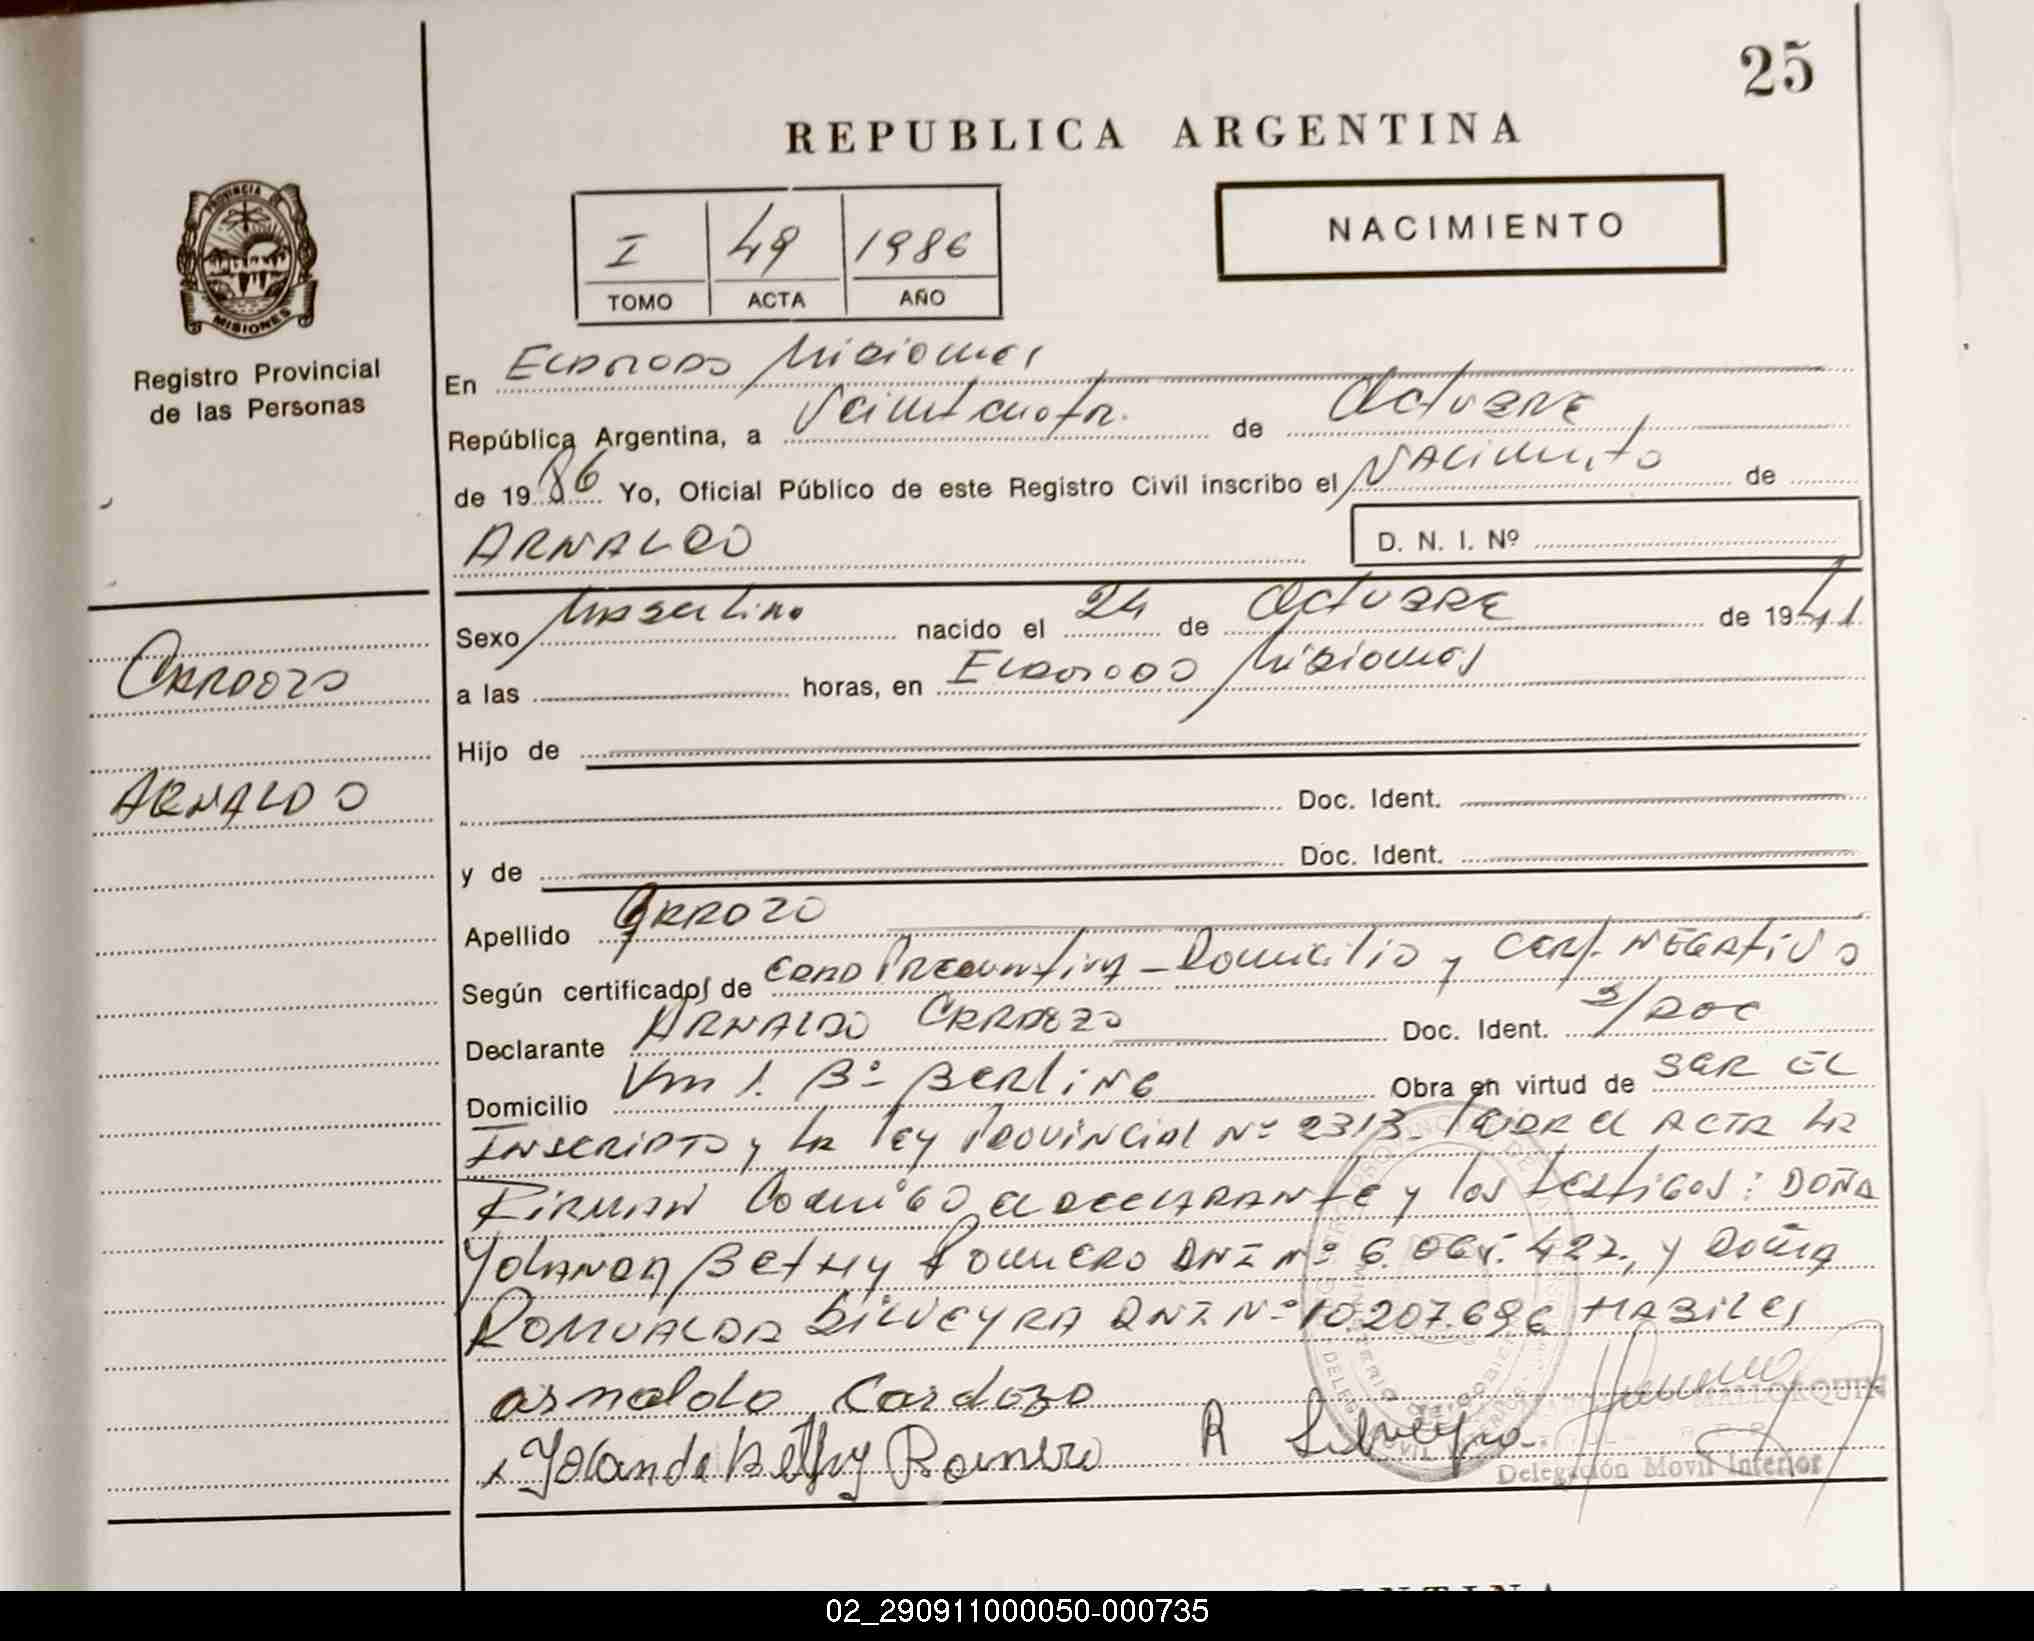 25
REPUBLICA ARGENTINA
PROVINCIA DE
MISIONES
Registro Provincial
de las Personas
I 49 1986
TOMO ACTA AÑO
NACIMIENTO
En ELDORADO Misiones
República Argentina, a Veinticuatro de OctuBRE
de 1986 Yo, Oficial Público de este Registro Civil inscribo el NACimiento de
ARNALDO
D. N. I. Nº
Sexo Masculino nacido el 24 de OctuBRE de 1941
a las horas, en ELDORADO Misiones
CARDOZO
ARNALDO
Hijo de
Doc. Ident.
y de Doc. Ident.
Apellido CARDOZO
Según certificados de EDAD Presuntiva - Domicilio y CERt. NEGAtivo
Declarante ARNALDO CARDOZO Doc. Ident. S/DOC
Domicilio Km 1. Bº BERLiNE Obra en virtud de SER EL
INSCRIPTO y LA ley PROViNCiAl Nº 2313. leidA el ACTA LA
FiRMAN Conmigo el DECLARANte y los testigos: DOÑA
YolANDA BetHy Romero DNI Nº 6.065.427, y Doña
ROMUALDA SilVEYRA DNI Nº 10.207.696 HABiles
arnaldo Cardozo
x Yolanda Bethy Romero R Silveyra
MALLORQUIN
Delegación Movil Interior
02_290911000050-000735